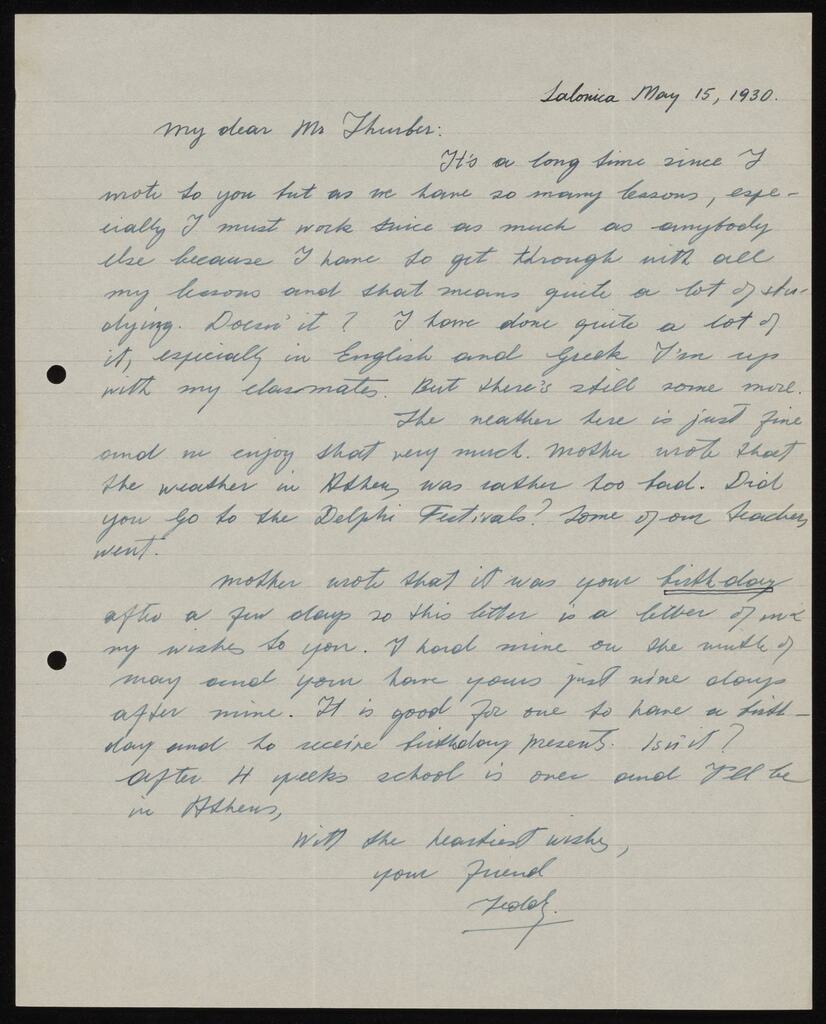 Salonica May 15, 1930.
My dear Mr Thurber:
It's a long time since I
wrote to you but as we have so many lessons, espe-
cially I must work twice as much as anybody
else because I have to get through with all
my lessons and that means quite a lot of stu-
dying. Doesn't it? I have done quite a lot of
it, especially in English and Greek I'm up
with my classmates. But there's still some more.
The weather here is just fine
and we enjoy that very much. Mother wrote that
the weather in Athens was rather too bad. Did
you go to the Delphi Festivals? Some of our teachers
went.
Mother wrote that it was your birthday
after a few days so this letter is a letter of
my wishes to you. I had mine on the ninth of
May and you have yours just nine days
after mine. It is good for one to have a birth-
day and to receive birthday presents. Isn't it?
After 4 weeks school is over and I'll be
in Athens,
With the heartiest wishes,
your friend
Teddy.